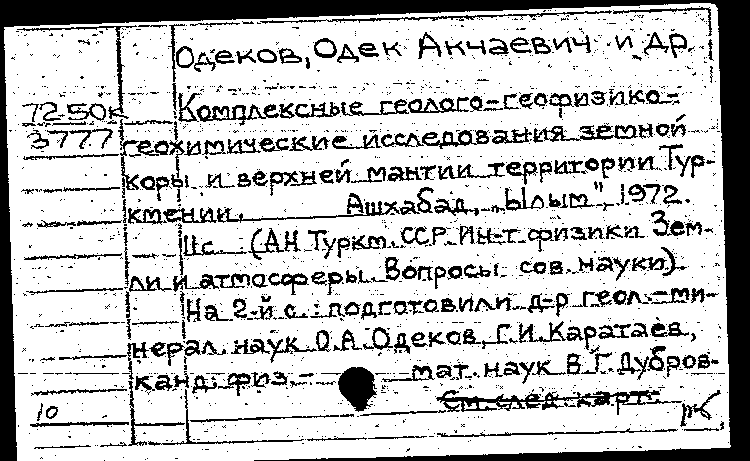 Одеков, Одек Акчаевич и др.
72-50к
3777
Комплексные геолого-геофизико-
геохимические исследования земной
коры и верхней мантии территории Тур-
кмении. Ашхабад, „Ылым", 1972.
11с. (АН Туркм. ССР. Ин-т физики Зем-
ли и атмосферы. Вопросы сов. науки).
На 2-й с.: подготовили д-р геол.-ми-
нерал. наук О.А.Одеков, Г.И.Каратаев,
канд. физ.- мат. наук В.Г.Дубров-
См. след. карт.
10